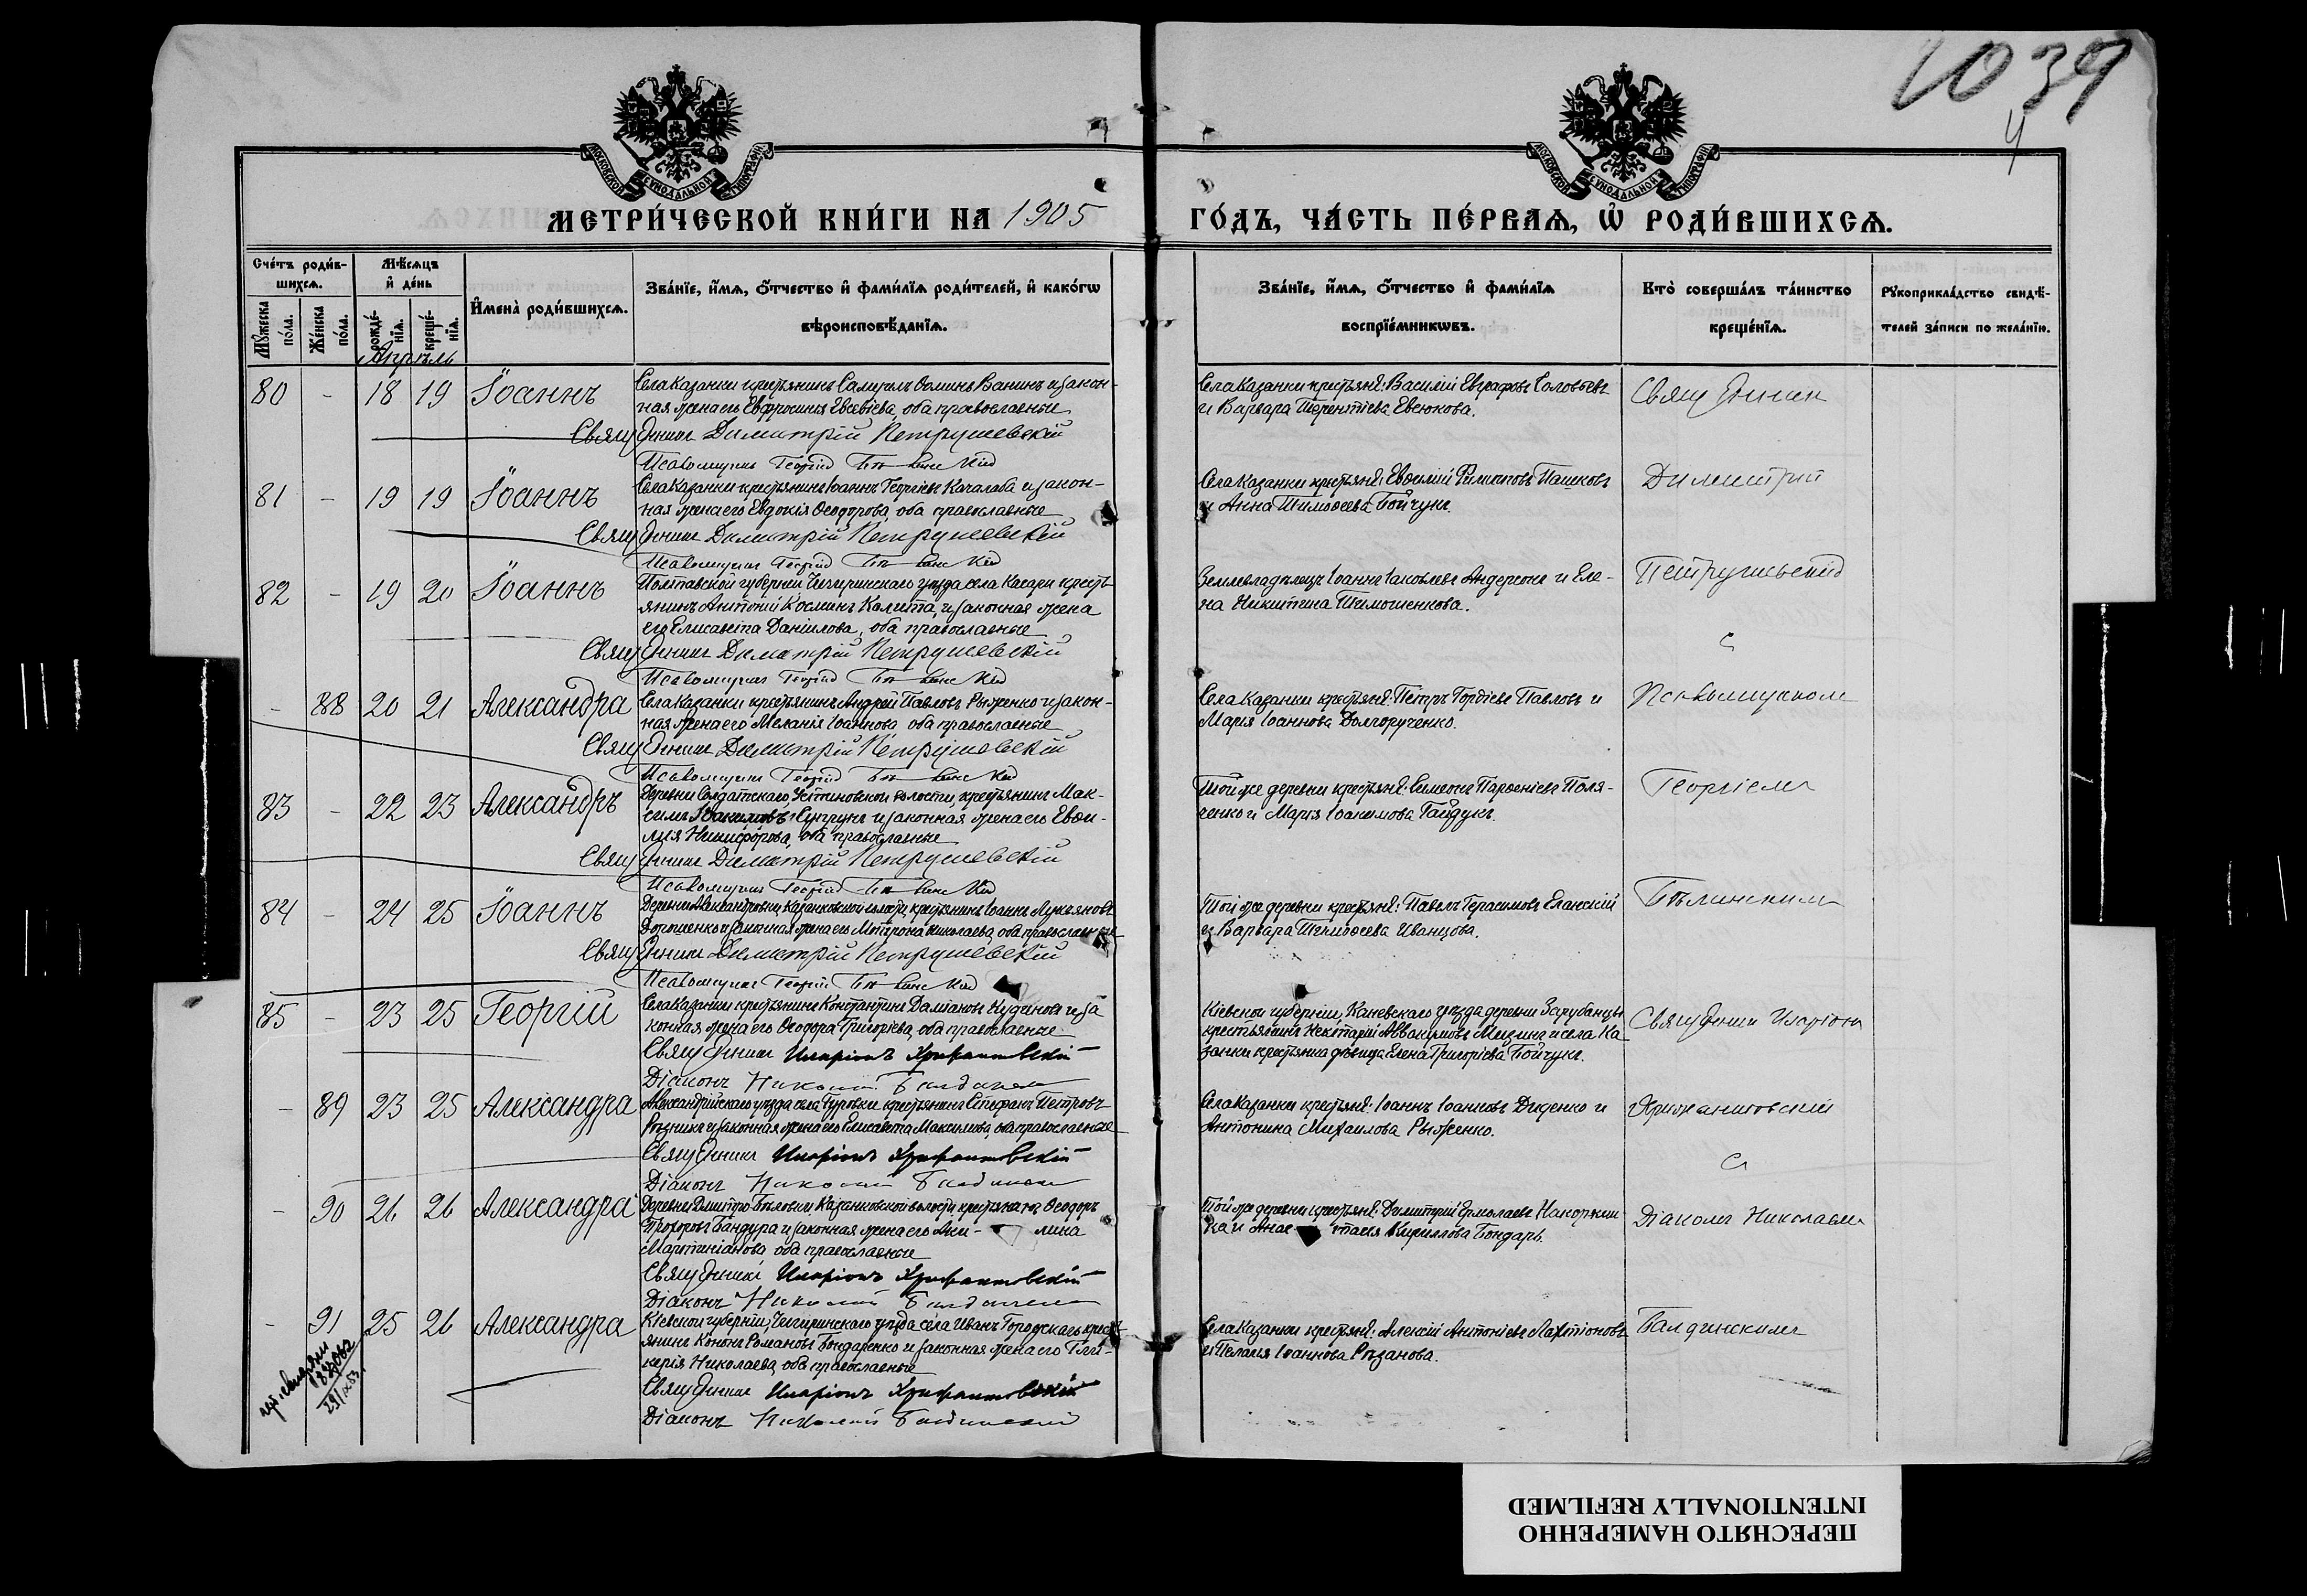 1039
4
МОСКОВСКОЙ СѴНОДАЛЬНОЙ ТИПОГРАФІИ
МОСКОВСКОЙ СѴНОДАЛЬНОЙ ТИПОГРАФІИ
МЕТРИ́ЧЕСКОЙ КНИ́ГИ НА 1905 ГО́ДЪ, ЧА́СТЬ ПЕ́РВАѦ, Ѡ҆ РОДИ́ВШИХСѦ.
Сче́тъ роди́в-
шихсѧ.
Мꙋ́жеска по́ла.
Же́нска по́ла.
Мѣ́сѧцъ
и҆ де́нь
рожде́-нїѧ.
креще́-нїѧ.
И҆мена̀ роди́вшихсѧ.
Зва́нїе, и҆́мѧ, ѻ҆́тчество и҆ фами́лїѧ роди́телей, и҆ како́гѡ
вѣроисповѣ́данїѧ.
Зва́нїе, и҆́мѧ, ѻ҆́тчество и҆ фами́лїѧ
воспрїе́мникѡвъ.
Кто̀ соверша́лъ та́инство
креще́нїѧ.
Рꙋкоприкла́дство свидѣ́-
телей за́писи по жела́нїю.
Апрѣль
80 - 18 19 Іоаннъ
Села Казанки крестьянинъ Самуилъ Ѳоминъ Ванинъ и закон-
ная жена его Евфросинія Евсевіева, оба православные
Священникъ Димитрій Петрушевскій
Псаломщикъ Георгій
Села Казанки крестьяне: Василій Евграфовъ Соловьевъ
и Варвара Терентіева Евсюкова.
Священник
81 - 19 19 Іоаннъ
Села Казанки крестьянинъ Іоаннъ Георгіевъ Качалаба и закон-
ная жена его Евдокія Ѳеодорова, оба православные
Священникъ Димитрій Петрушевскій
Псаломщикъ Георгій
Села Казанки крестьяне: Евѳимій Филиповъ Пашковъ
и Анна Тимоѳеева Бойчукъ.
Димитрій
82 - 19 20 Іоаннъ
Полтавской губерніи Чигиринскаго уѣзда села Косари кресть-
янинъ Антоній Косминъ Калита, и законная жена
его Елисавета Даніилова, оба православные
Священникъ Димитрій Петрушевскій
Псаломщикъ Георгій
Землевладѣлецъ Іоаннъ Іаковлевъ Андерсонъ и Еле-
на Никитина Тимошенкова.
Петрушевскій
с
- 88 20 21 Александра
Села Казанки крестьянинъ Андрей Павловъ Рыженко и закон-
ная жена его Меланія Іоаннова, оба православные
Священникъ Димитрій Петрушевскій
Псаломщикъ Георгій
Села Казанки крестьяне: Петръ Гордіевъ Павловъ и
Марія Іоаннова Долгорученко.
Псаломщиком
83 - 22 23 Александръ
Деревни Солдатскаго, Устиновской волости, крестьянинъ Мак-
симъ Іоакимовъ Супрунъ и законная жена его Евѳи-
мія Никифорова, оба православные
Священникъ Димитрій Петрушевскій
Псаломщикъ Георгій
Той же деревни крестьяне: Симеонъ Парѳеніевъ Поля-
ченко и Марія Іоакимова Гайдукъ.
Георгіемъ
84 - 24 25 Іоаннъ
Деревни Александровки, Казанковской волости, крестьянинъ Іоаннъ Лукьяновъ
Дорошенко и законная жена его Матрона Николаева, оба православные
Священникъ Димитрій Петрушевскій
Псаломщикъ Георгій
Той же деревни крестьяне: Павелъ Герасимовъ Еланскій
и Варвара Тимоѳеева Иванцова.
Бѣлинскимъ
85 - 23 25 Георгій
Села Казанки крестьянинъ Константинъ Даміановъ Кудиновъ и за-
конная жена его Ѳеодора Григорьева, оба православные
Священникъ Иларіонъ Хрисанѳовскій
Діаконъ Николай Балдинскій
Кіевской губерніи, Каневскаго уѣзда деревни Зарубанцы
крестьянинъ Нектарій Аввакумовъ Мизинъ и села Ка-
занки крестьянка дѣвица Елена Григорьева Бойчукъ.
Священник Иларіонъ
- 89 23 25 Александра
Александрійскаго уѣзда села Гуровки крестьянинъ Стефанъ Петровъ
Рѣзникъ и законная жена его Елисавета Максимова, оба православные
Священникъ Иларіонъ Хрисанѳовскій
Діаконъ Николай Балдинскій
Села Казанки крестьяне: Іоаннъ Іоанновъ Диденко и
Антонина Михаилова Рыженко.
Хрисанѳовскій
с
- 90 26 26 Александра
Деревни Дмитро-Бѣловки Казанковской волости крестьянинъ Ѳеодоръ
Прохоровъ Бандура и законная жена его Аки- лина
Мартиніанова, оба православные
Священникъ Иларіонъ Хрисанѳовскій
Діаконъ Николай Балдинскій
Той же деревни крестьяне: Димитрій Ермолаевъ
ка и Анас тасія Кириллова Бондарь.
Діакономъ Николаемъ
- 91 25 26 Александра
Кіевской губерніи, Чигиринскаго уѣзда села Иванъ Городскаго крест-
янинъ Кононъ Романовъ Бондаренко и законная жена его Гли-
керія Николаева, оба православные
Священникъ Иларіонъ Хрисанѳовскій
Діаконъ Николай Балдинскій
Села Казанки крестьяне: Алексій Антоніевъ Лахтіоновъ
и Пелагія Іоаннова Рѣзанова.
Балдинскимъ
ПЕРЕСНЯТО НАМЕРЕННО
INTENTIONALLY REFILMED